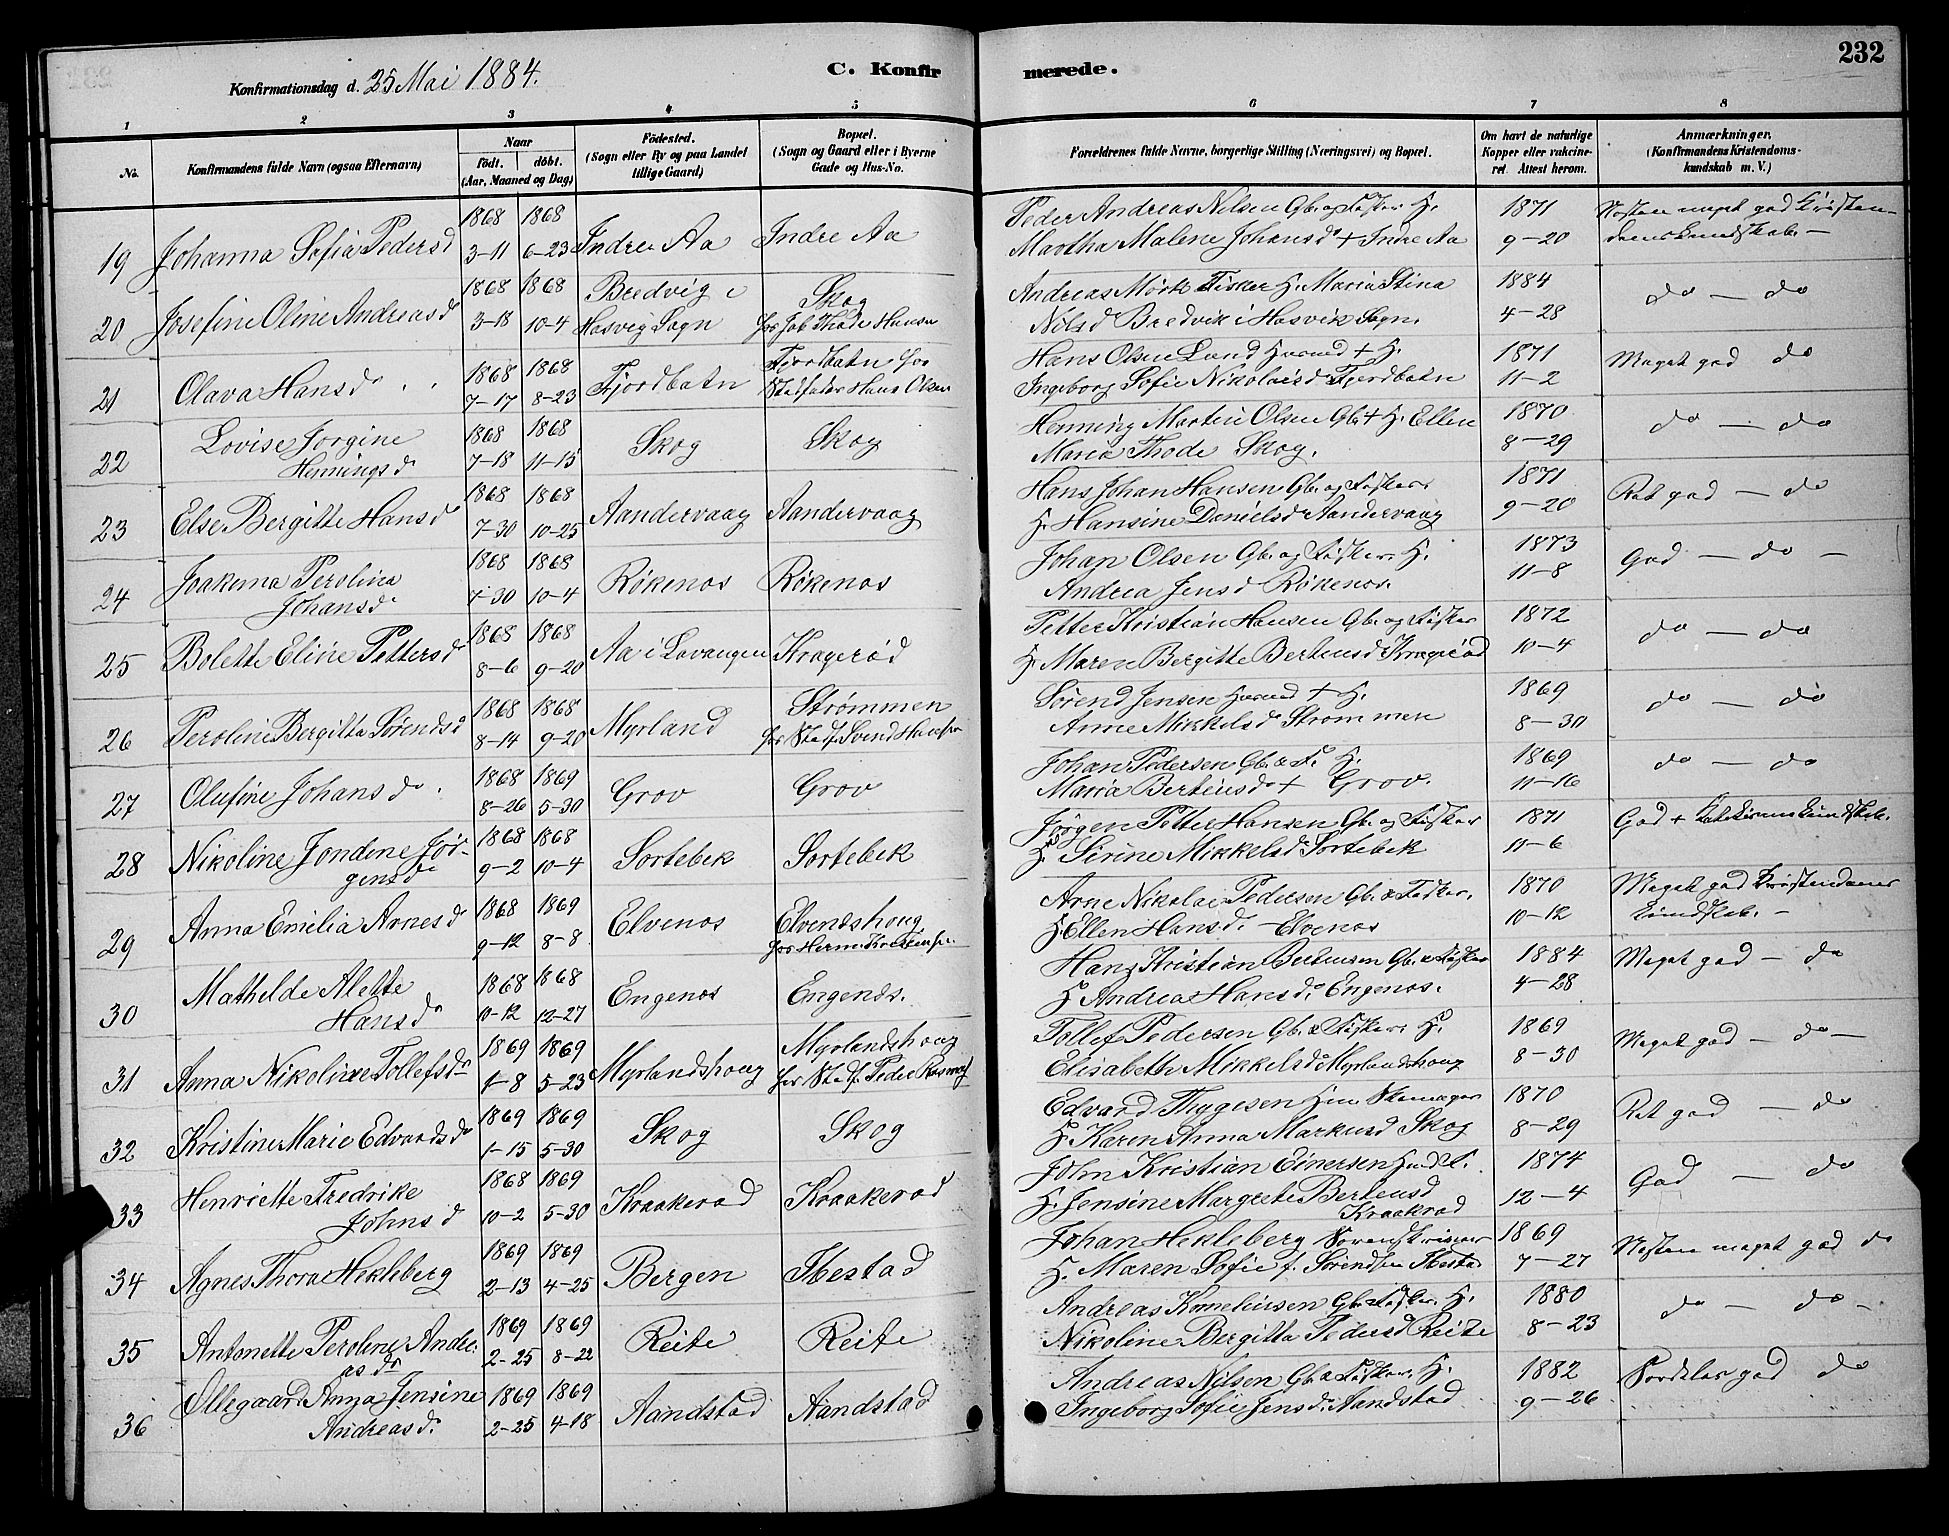 Konfirmationsdag d. 25 Mai 1884. C. Konfirmerede. 232
1 2 3 4 5 6 7 8
No. Konfirmandens fulde Navn (ogsaa Efternavn) Naar født. døbt. (Aar, Maaned og Dag) Fødested. (Sogn eller By og paa Landet tillige Gaard) Bopæl. (Sogn og Gaard eller i Byerne Gade og Hus-No. Forældrenes fulde Navne, borgerlige Stilling (Næringsvei) og Bopæl. Om havt de naturlige Kopper eller vakcineret. Attest herom. Anmærkninger, (Konfirmandens Kristendomskundskab m. V.)
1868 1868 Peder Andreas Nilsen Gbr. og Fisker H. 1871 Næsten meget god Kristen-
19 Johanna Sofia Pedersd 3-11 6-23 Indre Aa Indre Aa Martha Malene Johansd + Indre Aa 9-20 domskundskab. -
1868 1868 Bredvig i Skog Andreas Mørk Fisker H. Maria Stina 1884 do - do
20 Josefine Oline Andreasd 3-18 10-4 Hasvig Sogn hos Jab Thode Hansen Nilsd Bredvik i Hasvik Sogn. 4-28
1868 1868 Fjordbotn hos Hans Olsen Lund Husmd + H. 1871 Meget god do
21 Olava Hansd 7-17 8-23 Fjordbotn Stedfader Hans Olsen Ingeborg Sofie Nikolaisd Fjordbotn 11-2
Lovise Jørgine 1868 1868 Henning Martin Olsen Gbr + H. Ellen 1870 do - do
22 Henningsd 7-18 11-15 Skog Skog Maria Thode Skog. 8-29
1868 1868 Hans Johan Hansen Gbr. og Fisker 1871 Ret god - do
23 Else Bergitte Hansd 7-30 10-25 Aandervaag Aandervaag H. Hansine Danielsd Aandervaag 9-20
Joakima Perolina 1868 1868 Johan Olsen Gbr. og Fisker. H. 1873 God - do -
24 Johansd 7-30 10-4 Røkenes Røkenes Andrea Jensd Røkenes. 11-8
1868 1868 Petter Kristian Hansen Gbr. og Fisker 1872 do - do
25 Bolette Eline Pettersd 8-6 9-20 Aa i Lavangen Kragerød H. Maren Bergitte Bertensd Kragerød 10-4
1868 1868 Strømmen Sørend Jensen Husmd + H. 1869 do - do
26 Peroline Bergitta Sørendsd 8-14 9-20 Myrland hos Stedf. Svend Hansen Anne Mikkelsd Strømmen 8-30
1868 1869 Johan Pedersen Gbr. & F. H. 1869 do - do
27 Olufine Johansd 8-26 5-30 Grov Grov Maria Bertensd + Grov. 11-16
1868 1868 Jørgen Petter Hansen Gbr. og Fisker 1871
28 Nikoline Jondine Jør- 9-2 10-4 Sortebek Sortebek H. Sirine Mikkelsd Sortebek 11-6
gensd
1868 1869 Arne Nikolai Pedersen Gbr. & Fisker. 1870 Meget god Kristendoms
29 Anna Emilia Arnesd 9-12 8-8 Elvenes Elvendshoug H. Ellen Hansd. Elvenes 10-12 kundskab. -
Mathelde Alette 1868 1868 Hans Kristian Bertensen Gbr. & Fisker 1884 Meget god - do
30 Hansd 10-12 12-27 Engenes Engenes. H. Andrea Hansd. Engenes. 4-28
1869 1869 Myrlandshoug Tollef Pedersen Gbr. & Fisker. H. 1869 Meget god - do -
31 Anna Nikoline Tollefsd 1-8 5-23 Myrlandshoug hos Stedf. Peder Rasmus Elisabeth Mikkelsd Myrlandshoug 8-30
1869 1869 Edvard Thygesen Skomager 1870 Ret god - do
32 Kristine Marie Edvardsd 1-15 5-30 Skog Skog H. Karen Anna Markusd Skog 8-29
Henriette Fredrike 1868 1869 John Kristian Einersen 1874 God - do
33 Johnsd 10-2 5-30 Kraakerød Kraakerød H. Jensine Margrete Bertensd Kraakrød 12-4
1869 1869 Johan Hekleberg Sorenskriver 1869 Næsten meget god do
34 Agnes Thora Hekleberg 2-13 4-25 Bergen Ibestad H. Maren Sofie f. Sørendsen Ibestad 7-27
1869 1869 Andreas Kornelinsen Gbr. & Fisker. H. 1880 do - do -
35 Antonette Peroline Andre- 2-25 8-22 Reite Reite Nikoline Bergitta Pedersd Reite 8-23
asdr
Ollegaard Anna Jensine 1869 1869 Andreas Nilsen Gbr. & Fisker. H. 1882 god do
36 Andreasd. 2-25 4-18 Aandstad Aandstad Ingeborg Sofie Jensd. Aandstad 9-26